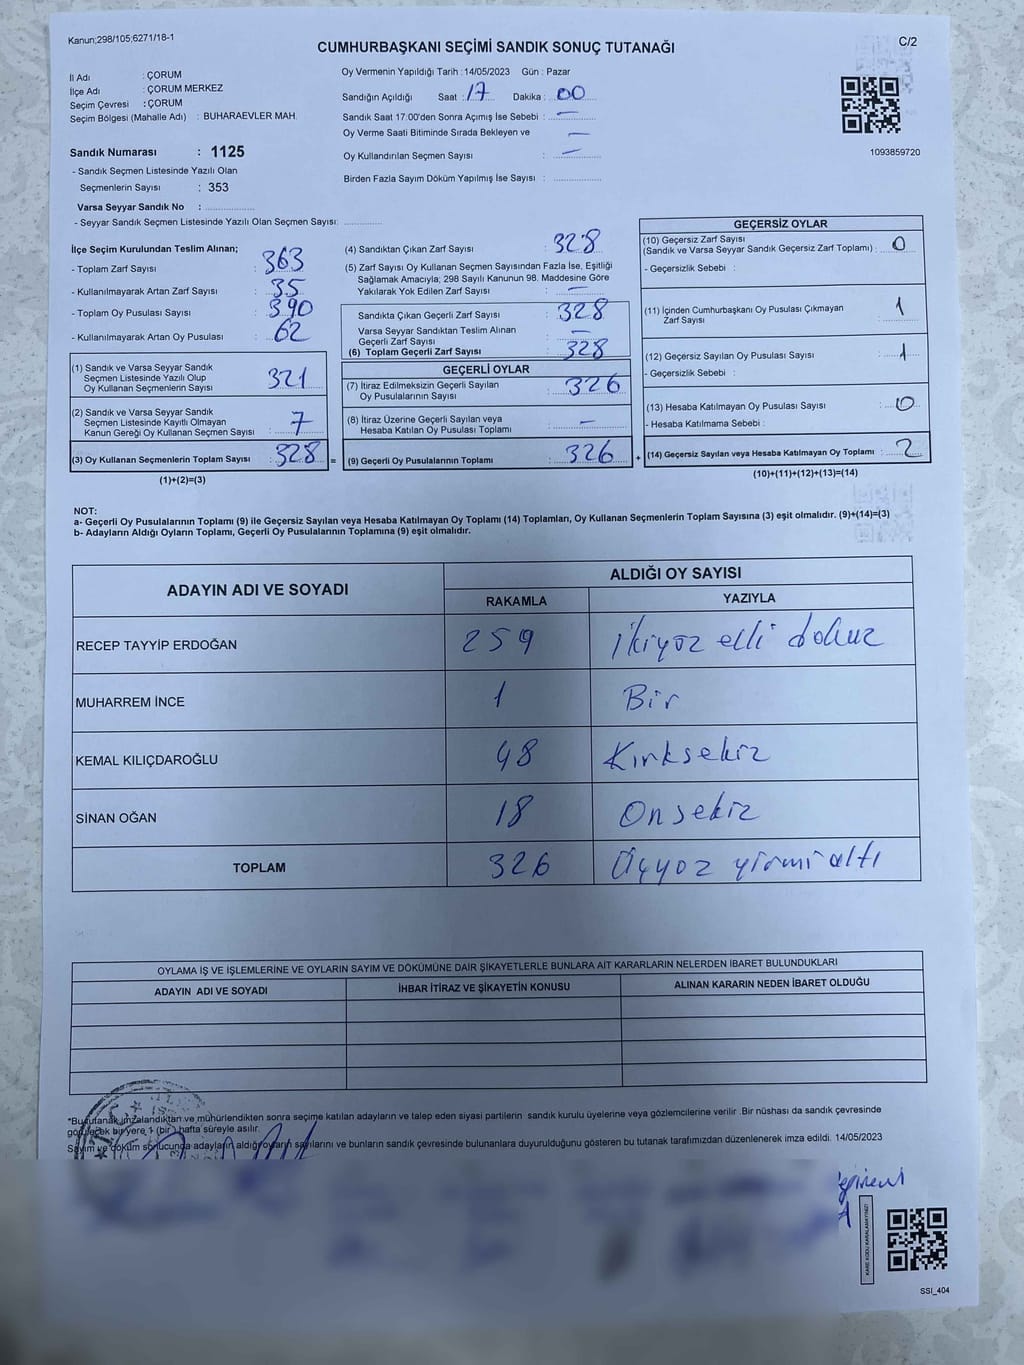 Kanun;298/105;6271/18-1
C/2
CUMHURBAŞKANI SEÇİMİ SANDIK SONUÇ TUTANAĞI
İl Adı : ÇORUM
İlçe Adı : ÇORUM MERKEZ
Seçim Çevresi : ÇORUM
Seçim Bölgesi (Mahalle Adı) : BUHARAEVLER MAH.
Oy Vermenin Yapıldığı Tarih : 14/05/2023 Gün : Pazar
Sandığın Açıldığı Saat : 17 Dakika : 00
Sandık Saat 17:00'den Sonra Açımış İse Sebebi : —
Oy Verme Saati Bitiminde Sırada Bekleyen ve —
Oy Kullandırılan Seçmen Sayısı : —
Birden Fazla Sayım Döküm Yapılmış İse Sayısı : ..............
1093859720
Sandık Numarası : 1125
- Sandık Seçmen Listesinde Yazılı Olan
Seçmenlerin Sayısı : 353
Varsa Seyyar Sandık No : ..............
- Seyyar Sandık Seçmen Listesinde Yazılı Olan Seçmen Sayısı: ..............
İlçe Seçim Kurulundan Teslim Alınan;
- Toplam Zarf Sayısı : 363
- Kullanılmayarak Artan Zarf Sayısı : 35
- Toplam Oy Pusulası Sayısı : 390
- Kullanılmayarak Artan Oy Pusulası : 62
(1) Sandık ve Varsa Seyyar Sandık
Seçmen Listesinde Yazılı Olup
Oy Kullanan Seçmenlerin Sayısı : 321
(2) Sandık ve Varsa Seyyar Sandık
Seçmen Listesinde Kayıtlı Olmayan
Kanun Gereği Oy Kullanan Seçmen Sayısı : 7
(3) Oy Kullanan Seçmenlerin Toplam Sayısı : 328 =
(1)+(2)=(3)
(4) Sandıktan Çıkan Zarf Sayısı : 328
(5) Zarf Sayısı Oy Kullanan Seçmen Sayısından Fazla İse, Eşitliği
Sağlamak Amacıyla; 298 Sayılı Kanunun 98. Maddesine Göre
Yakılarak Yok Edilen Zarf Sayısı : —
Sandıkta Çıkan Geçerli Zarf Sayısı : 328
Varsa Seyyar Sandıktan Teslim Alınan
Geçerli Zarf Sayısı : —
(6) Toplam Geçerli Zarf Sayısı : 328
GEÇERLİ OYLAR
(7) İtiraz Edilmeksizin Geçerli Sayılan
Oy Pusulasının Sayısı : 326
(8) İtiraz Üzerine Geçerli Sayılan veya
Hesaba Katılan Oy Pusulası Toplamı : —
(9) Geçerli Oy Pusulalarının Toplamı : 326 +
GEÇERSİZ OYLAR
(10) Geçersiz Zarf Sayısı
(Sandık ve Varsa Seyyar Sandık Geçersiz Zarf Toplamı) : 0
- Geçersizlik Sebebi :
(11) İçinden Cumhurbaşkanı Oy Pusulası Çıkmayan
Zarf Sayısı : 1
(12) Geçersiz Sayılan Oy Pusulası Sayısı : 1
- Geçersizlik Sebebi :
(13) Hesaba Katılmayan Oy Pusulası Sayısı : 0
- Hesaba Katılmama Sebebi :
(14) Geçersiz Sayılan veya Hesaba Katılmayan Oy Toplamı : 2
(10)+(11)+(12)+(13)=(14)
NOT:
a- Geçerli Oy Pusulalarının Toplamı (9) ile Geçersiz Sayılan veya Hesaba Katılmayan Oy Toplamı (14) Toplamları, Oy Kullanan Seçmenlerin Toplam Sayısına (3) eşit olmalıdır. (9)+(14)=(3)
b- Adayların Aldığı Oyların Toplamı, Geçerli Oy Pusulalarının Toplamına (9) eşit olmalıdır.
ADAYIN ADI VE SOYADI
ALDIĞI OY SAYISI
RAKAMLA YAZIYLA
RECEP TAYYİP ERDOĞAN 259 İkiyüz elli dokuz
MUHARREM İNCE 1 Bir
KEMAL KILIÇDAROĞLU 48 Kırksekiz
SİNAN OĞAN 18 Onsekiz
TOPLAM 326 Üçyüz yirmi altı
OYLAMA İŞ VE İŞLEMLERİNE VE OYLARIN SAYIM VE DÖKÜMÜNE DAİR ŞİKAYETLERLE BUNLARA AİT KARARLARIN NELERDEN İBARET BULUNDUKLARI
ADAYIN ADI VE SOYADI İHBAR İTİRAZ VE ŞİKAYETİN KONUSU ALINAN KARARIN NEDEN İBARET OLDUĞU
*Bu tutanak imzalandıktan ve mühürlendikten sonra seçime katılan adayların ve talep eden siyasi partilerin sandık kurulu üyelerine veya gözlemcilerine verilir .Bir nüshası da sandık çevresinde
görülecek bir yere 1 (bir ) hafta süreyle asılır.
Sayım ve döküm sonucunda adayların aldığı oyların sayılarını ve bunların sandık çevresinde bulunanlara duyurulduğunu gösteren bu tutanak tarafımızdan düzenlenerek imza edildi. 14/05/2023
SSI_404